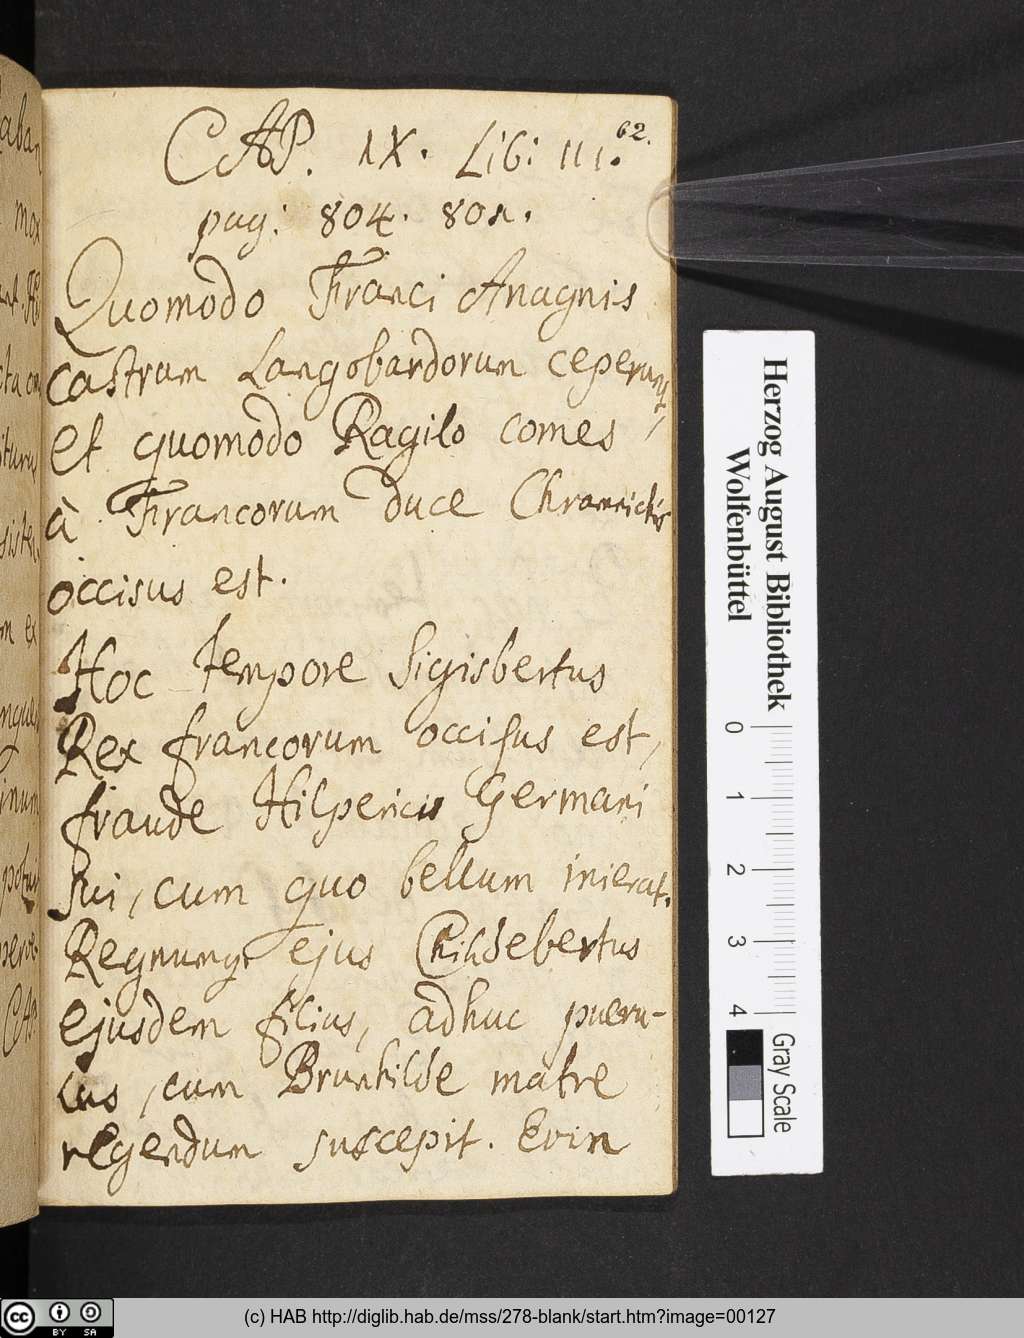 62.
CAP. IX. Lib: III.
pag: 804. 801.
Quomodo Franci Anagnis
castrum Langobardorum ceperunt,
et quomodo Ragilo comes
à Francorum duce Chramnichis
occisus est.
Hoc tempore Sigisbertus
Rex francorum occisus est,
fraude Hilperici Germani
sui, cum quo bellum inierat.
Regnumq; ejus Childebertus
ejusdem filius, adhuc pueru-
lus, cum Brunhilde matre
regendum suscepit. Evin
aban
mox
cta
m ex
potui
CAP
Herzog August Bibliothek
Wolfenbüttel
0 1 2 3 4
Gray Scale
cc BY SA
(c) HAB http://diglib.hab.de/mss/278-blank/start.htm?image=00127